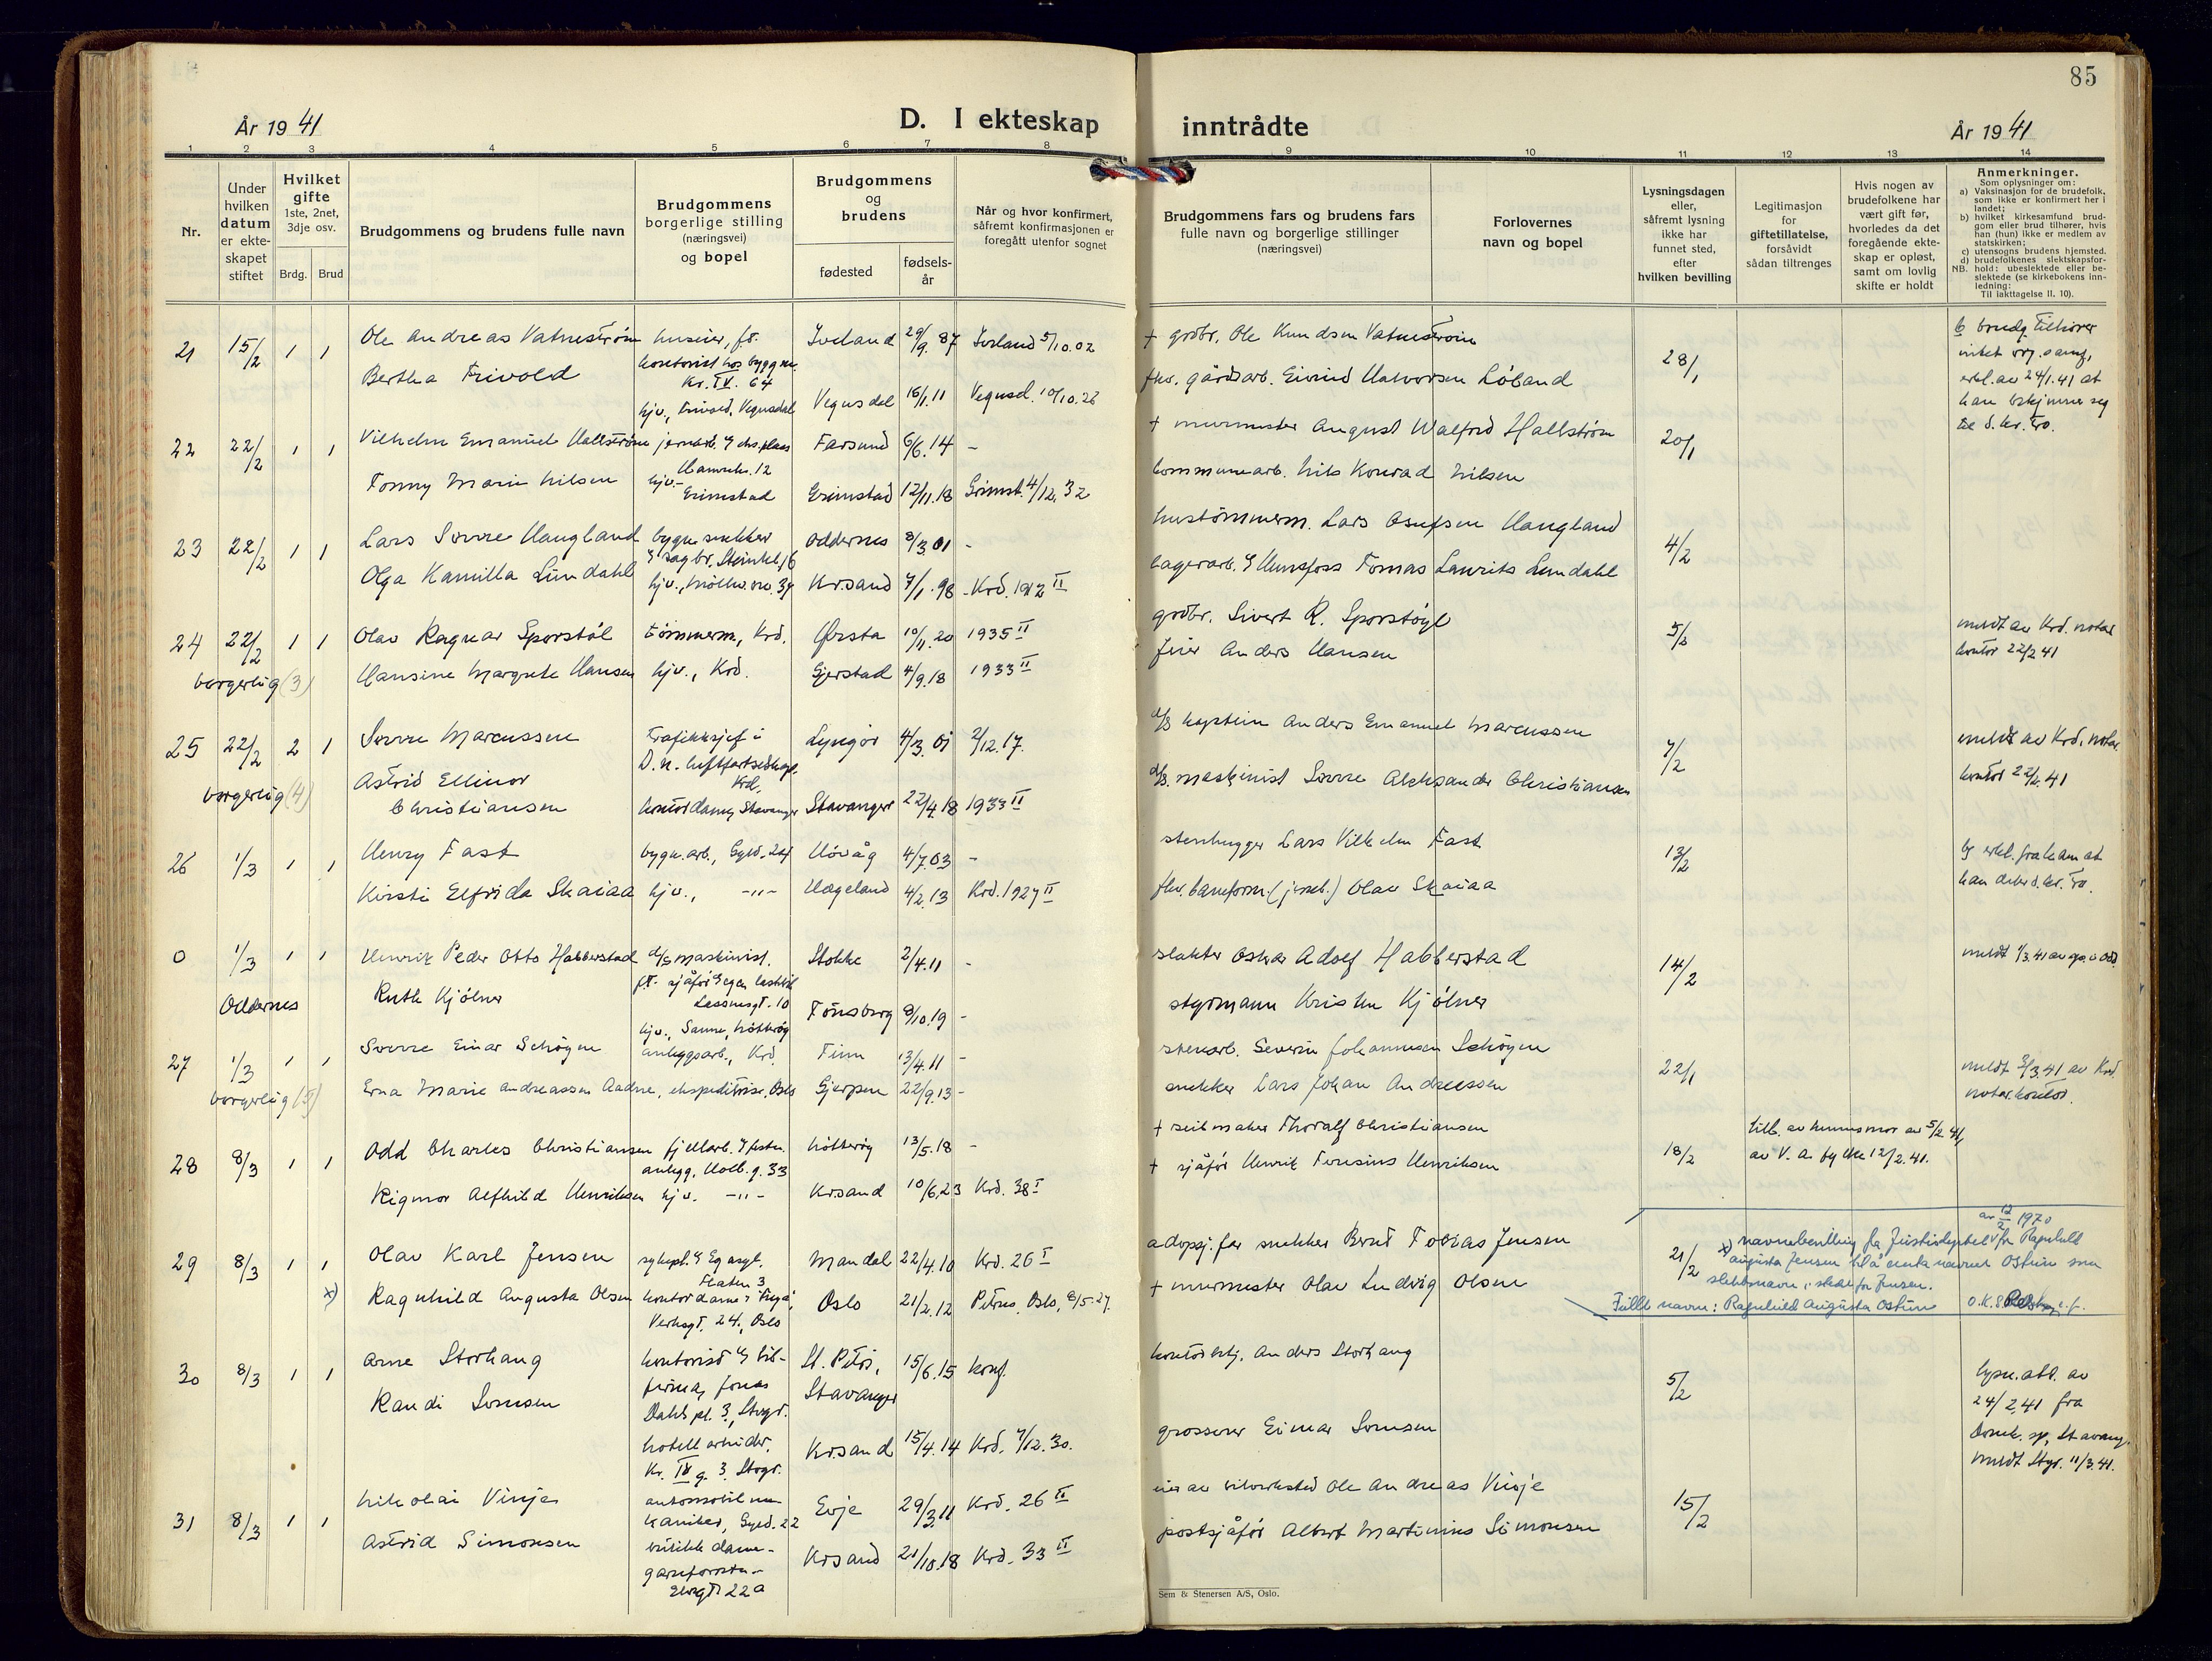 85
År 1941
D. I ekteskap
inntrådte
År 1941
1 2 3 4 5 6 7 8
9 10 11 12 13 14
Nr.
Under hvilken datum er ekteskapet stiftet
Hvilket gifte
1ste, 2net, 3dje osv.
Brdg. Brud
Brudgommens og brudens fulle navn
Brudgommens borgerlige stilling (næringsvei) og bopel
Brudgommens og brudens
fødested
fødselsår
Når og hvor konfirmert, såfremt konfirmasjonen er foregått utenfor sognet
Brudgommens fars og brudens fars fulle navn og borgerlige stillinger (næringsvei)
Forlovernes navn og bopel
Lysningsdagen eller, såfremt lysning ikke har funnet sted, efter hvilken bevilling
Legitimasjon for giftetillatelse, forsåvidt sådan tiltrenges
Hvis nogen av brudefolkene har vært gift før, hvorledes da det foregående ekteskap er opløst, samt om lovlig skifte er holdt
Anmerkninger.
Som oplysninger om:
a) Vaksinasjon for de brudefolk, som ikke er konfirmert her i landet;
b) hvilket kirkesamfund brudgom eller brud tilhører, hvis han (hun) ikke er medlem av statskirken;
c) utensogns brudens hjemsted.
d) brudefolkenes slektskapsforhold: ubeslektede eller beslektede (se kirkebokens innledning:
NB.
Til iakttagelse II. 10).
21 15/2 1 1 Ole Andreas Vatnestrøm huseier, ft. Iveland 29/9.87 Iveland 5/10.02 + grdbr. Ole Knudsen Vatnestrøm 28/1
kontorist hos byggm. Kr. IV. 64
b brudg tilhører intet rel. samf, erkl. av 24/1.41 at han bekjenner seg til d. kr. tro.
Bertha Frivold hjv., Frivold, Vegusdal Vegusdal 16/1.11 Vegusd. 10/10.26 fhv. gårdsarb. Eivind Halvorsen Løland
22 22/2 1 1 Vilhelm Emanuel Hallstrøm Farsund 6/6.14 - + murmester August Walfrid Hallstrøm 20/1
Tonny Marie Nilsen hjv. Grimstad Grimstad 12/11.18 Grimst. 4/12.32 kommunearb. Nils Konrad Nilsen
23 22/2 1 1 Lars Sverre Haugland bygn. snekker Oddernes 8/3.01 - hustømmerm. Lars Osufsen Haugland 4/2
Olga Kamilla Lundahl hjv., Krsand 7/1.98 Krd. 1912 II lagerarb. Hunsfoss Tomas Laurits Lundahl
24 22/2 1 1 Olav Ragnar Sporstøl tømmerm., Krd. Ørsta 10/11.20 1935 II grdbr. Sivert R. Sporstøyl 5/2 meldt av Krd. notar kontor 22/2 41
borgerlig (3) Hansine Margrete Hansen hjv., Krd. Gjerstad 4/9.18 1933 II feier Anders Hansen
25 22/2 2 1 Sverre Marcussen Trafikksjef i D.N. luftfartselskap, Krd, Lyngør 4/3.01 2/12.17. d/s kaptein Anders Emanuel Marcussen 7/2 meldt av Krd. notar kontor 22/2.41
borgerlig (4) Astrid Ellinor Christiansen kontordame, Stavanger Stavanger 22/4.18 1933 II d/s. maskinist Sverre Aleksander Christiansen
26 1/3 1 1 Henry Fast bygn.arb., Gyld. 24 Høvåg 4/7.03 - stenhugger Lars Vilhelm Fast 13/2 b) erkl. fra ham at han deler d. kr. tro.
Kirsti Elfrida Skaiaa hjv., -"- Hægeland 4/2.13 Krd. 1927 II fhv. baneform. (jernb.) Olav Skaiaa
0 1/3 1 1 Henrik Peder Otto Habberstad d/s maskinist. Stokke 2/4.11 - slakter Oskar Adolf Habberstad 14/2
Oddernes Ruth Kjølner Tønsberg 8/10.19 - styrmann Kristen Kjølner
27 1/3 1 1 Sverre Einar Schøyen anleggsarb., Krd. Tinn 13/4.11 - stenarb. Severin Johannesen Schøyen 22/1 meldt 3/3.41 av Krd. notar.kontor.
borgerlig (5) Erna Marie Andreassen Aadne, ekspeditrise, Oslo Gjerpen 22/9.13 - snekker Lars Johan Andreassen
28 8/3 1 1 Odd Charles Christiansen 13/5.18 - + seilmaker Thoralf Christiansen 18/2 till. av hennes mor av 5/2 41, av V. A. fylke 12/2.41.
Rigmor Alfhild Henriksen hjv. -"- Krsand 10/6.23 Krd. 38 I + sjåfør Henrik Teresius Henriksen
29 8/3 1 1 Olav Karl Jensen sykepl. Eg asyl. Flaten 3 Mandal 22/4.10 Krd. 26 I adopt.far snekker Bernt Tobias Jensen 21/2
x) Ragnhild Augusta Olsen kontordame "Freya", Verksgt. 24, Oslo Oslo 21/2.12 Petrus, Oslo, 8/5.27. + murmester Olav Ludvig Olsen
av 12/2 1970
x) navnebevilling fra Justisdeptet for Ragnhild Augusta Jensen til å ta navnet Ostun som slektsnavn, istedet for Jensen.
Fulle navn: Ragnhild Augusta Ostun
30 8/3 1 1 Arne Storhaug St. Petri, Stavanger 15/6.15 konf. kontorbtj. Anders Storhaug 5/2
Randi Sørensen hotellarbeider, Krsand 15/4.14 Krd. 7/12.30. grosserer Einar Sørensen
lysn.att. av 24/2.41 fra Domk. sp, Stavang. meldt Stgr. 11/3.41.
31 8/3 1 1 Nikolai Vinje automobilmekaniker, Gyld. 22 Evje 29/3.11 Krd. 26 II eier av bilverksted Ole Andreas Vinje 15/2
Astrid Simonsen Elvegt. 22a Krsand 21/10.18 Krd. 33 II postsjåfør Albert Martinius Simonsen
Sem & Stenersen A/S, Oslo.